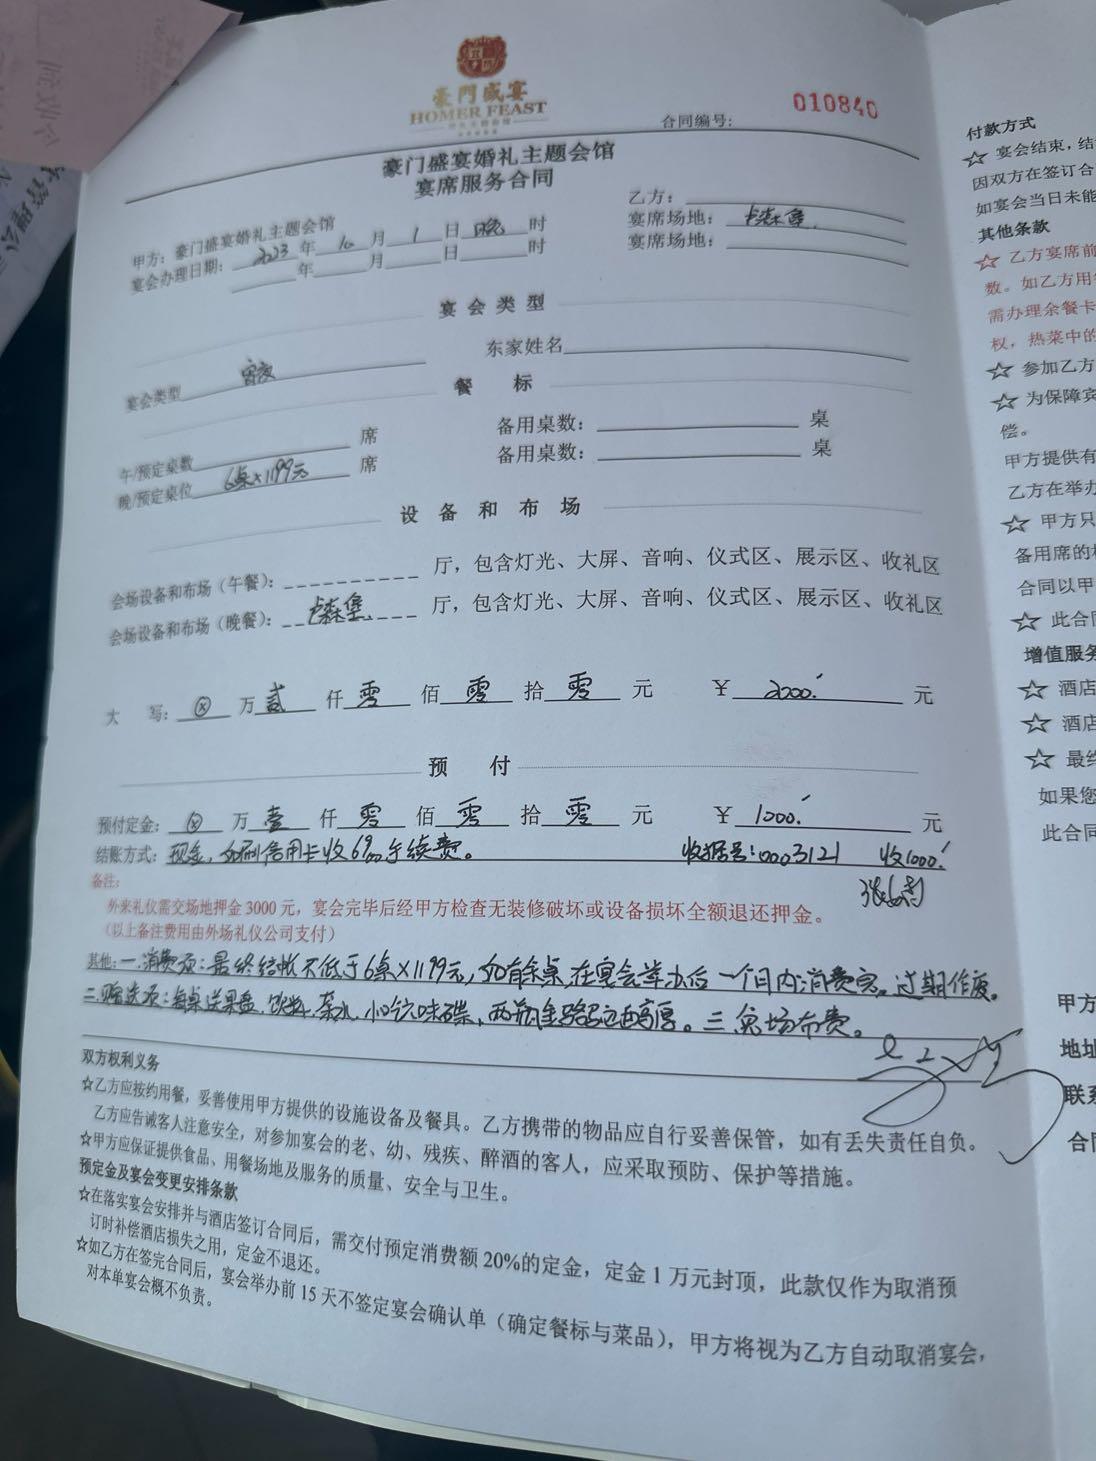 豪門盛宴
HOMER FEAST
合同编号:
010840
豪门盛宴婚礼主题会馆
宴席服务合同
甲方：豪门盛宴婚礼主题会馆
乙方：
宴会办理日期：2023年10月1日晚时
宴席场地：卢森堡
年 月 日 时
宴席场地：
宴会类型
宴会类型
东家姓名
餐 标
午/预定桌数 席
备用桌数： 桌
晚/预定桌位 6桌×1199元 席
备用桌数： 桌
设备和布场
会场设备和布场（午餐）： 厅，包含灯光、大屏、音响、仪式区、展示区、收礼区
会场设备和布场（晚餐）：卢森堡 厅，包含灯光、大屏、音响、仪式区、展示区、收礼区
大 写：ⓧ万贰仟零佰零拾零元 ￥2000.元
预 付
预付定金：ⓧ万壹仟零佰零拾零元 ￥1000.元
结账方式：现金，如刷信用卡收6‰手续费。 收据号：0003121 收1000.
备注：
外来礼仪需交场地押金3000元，宴会完毕后经甲方检查无装修破坏或设备损坏全额退还押金。
（以上备注费用由外场礼仪公司支付）
其他：一.消费项：最终结帐不低于6桌×1199元，如有余桌，在宴会举办后一个月内消费完。过期作废。
二.赠送项：每桌送果盘.饮料.茶水.小吃味碟，两瓶。三.免场布费。
双方权利义务
☆乙方应按约用餐，妥善使用甲方提供的设施设备及餐具。乙方携带的物品应自行妥善保管，如有丢失责任自负。
乙方应告诫客人注意安全，对参加宴会的老、幼、残疾、醉酒的客人，应采取预防、保护等措施。
☆甲方应保证提供食品、用餐场地及服务的质量、安全与卫生。
预定金及宴会变更安排条款
☆在落实宴会安排并与酒店签订合同后，需交付预定消费额20%的定金，定金1万元封顶，此款仅作为取消预
订时补偿酒店损失之用，定金不退还。
☆如乙方在签完合同后，宴会举办前15天不签定宴会确认单（确定餐标与菜品），甲方将视为乙方自动取消宴会，
对本单宴会概不负责。
付款方式
☆ 宴会结束，结
因双方在签订合
如宴会当日未能
其他条款
☆ 乙方宴席前
数。如乙方用
需办理余餐卡
权，热菜中的
☆ 参加乙方
☆ 为保障宾
偿。
甲方提供有
乙方在举办
☆ 甲方只
备用席的
合同以甲
☆ 此合同
增值服务
☆ 酒店
☆ 酒店
☆ 最终
如果您
此合同
甲方
地址
联系
合同